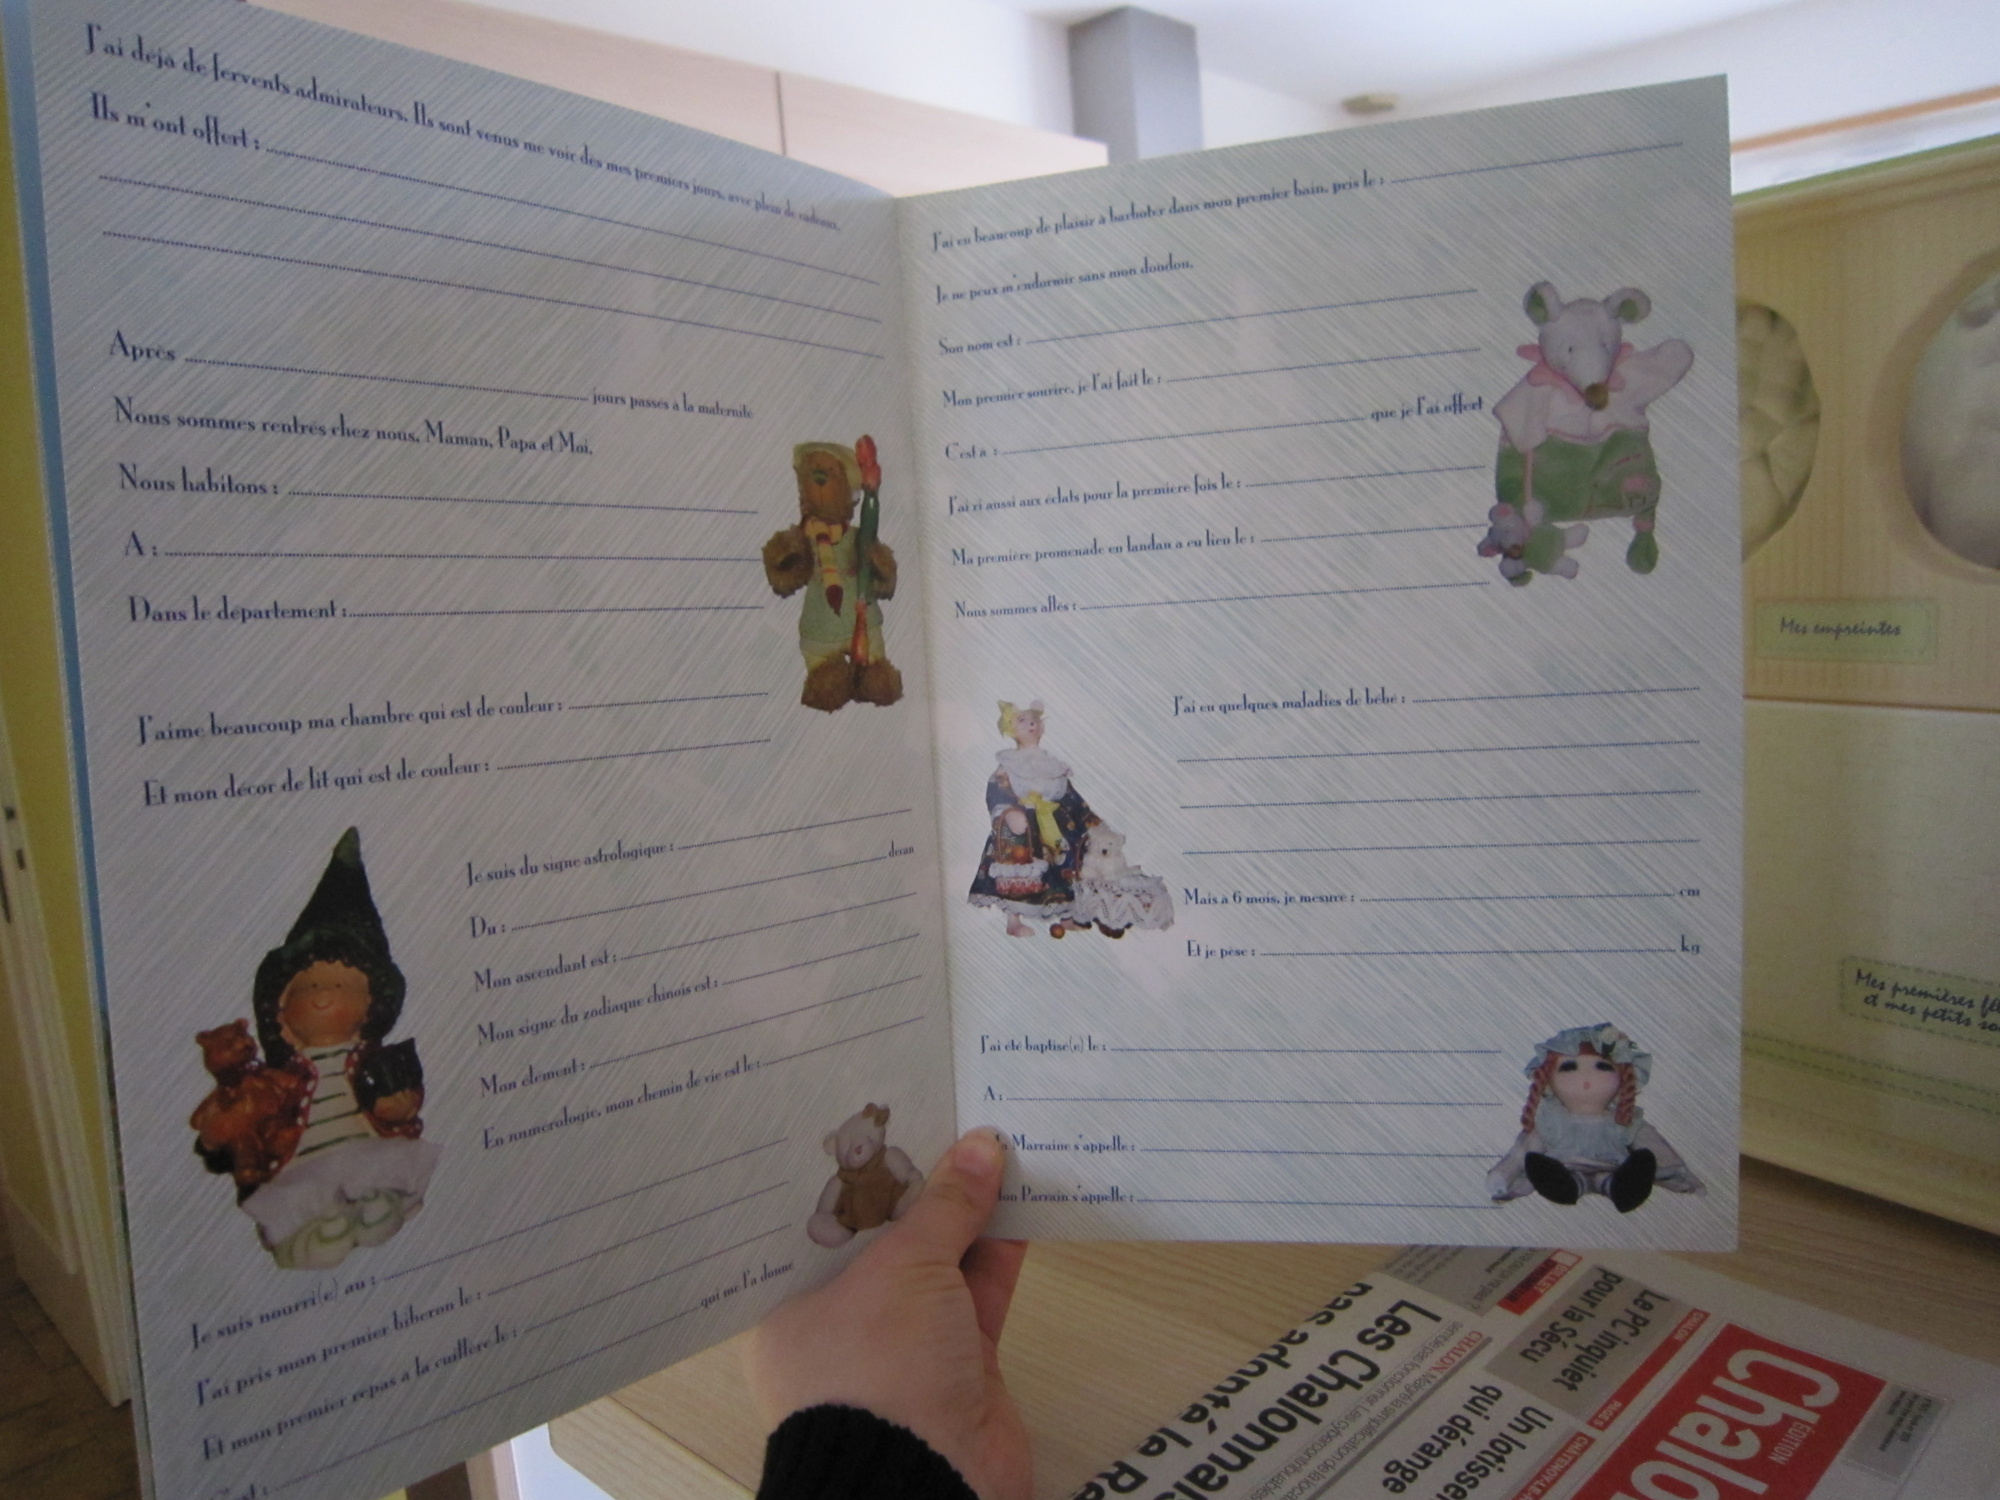 J'ai déjà de fervents admirateurs. Ils sont venus me voir dès mes premiers jours, avec plein de cadeaux.
Ils m'ont offert :
Après jours passés à la maternité
Nous sommes rentrés chez nous, Maman, Papa et Moi.
Nous habitons :
A :
Dans le département :
J'aime beaucoup ma chambre qui est de couleur :
Et mon décor de lit qui est de couleur :
Je suis du signe astrologique :
Du : décan
Mon ascendant est :
Mon signe du zodiaque chinois est :
Mon élément :
En numérologie, mon chemin de vie est le :
Je suis nourri(e) au :
J'ai pris mon premier biberon le :
Et mon premier repas à la cuillère le :
qui me l'a donné
J'ai eu beaucoup de plaisir à barboter dans mon premier bain, pris le :
Je ne peux m'endormir sans mon doudou.
Son nom est :
Mon premier sourire, je l'ai fait le :
C'est à : que je l'ai offert
J'ai ri aussi aux éclats pour la première fois le :
Ma première promenade en landau a eu lieu le :
Nous sommes allés :
J'ai eu quelques maladies de bébé :
Mais à 6 mois, je mesure : cm
Et je pèse : kg
J'ai été baptisé(e) le :
A :
Marraine s'appelle :
Parrain s'appelle :
Mes empreintes
Mes premières
et mes petits
Les Chalonnais
pas adopté la
CHALON. Malgré la simplification de la
BILLET
Le PC inquiet
pour la Sécu
CHALON
PAGE 5
Un
qui dérange
ÉDITION